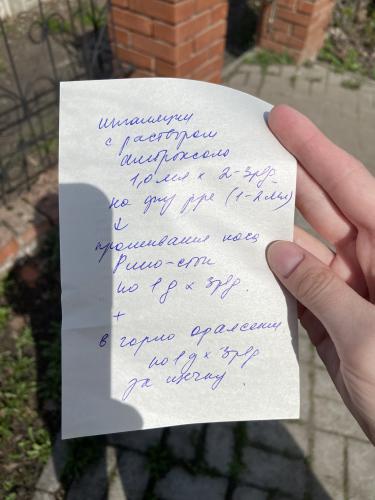 ингаляции
с раствором
амброксола
1,0 мл х 2-3р/д
на физ р-ре (1-2мл)
↓
промывания носа
Рино-стоп
по 1д х 3р/д.
+
в горло
по 1д х 3р/д
за щечку.